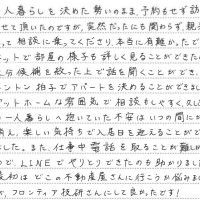 人暮らしを決めた勢いのまま、予約もせず訪
せて頂いたのですが、突然だったにも関わらず、親
って相談に乗ってくださり、本当に有難かったで
ットで部屋の様子を詳しく見ることができた
分候補を絞った上で話を聞くことができ、
ントン拍子でアパートを決めることができまし
ットホームな雰囲気で相談もしやすく、
一人暮らしへ抱いていた不安はいつの間にか
え、楽しい気持ちで入居日を迎えることがで
した。また、仕事中電話を取ることが難し
ので、LINEでやりとりできたのも助かりまし
最初はどこの不動産屋さんに行こうか悩みま
が、フロンティア技研さんにして良かったです!